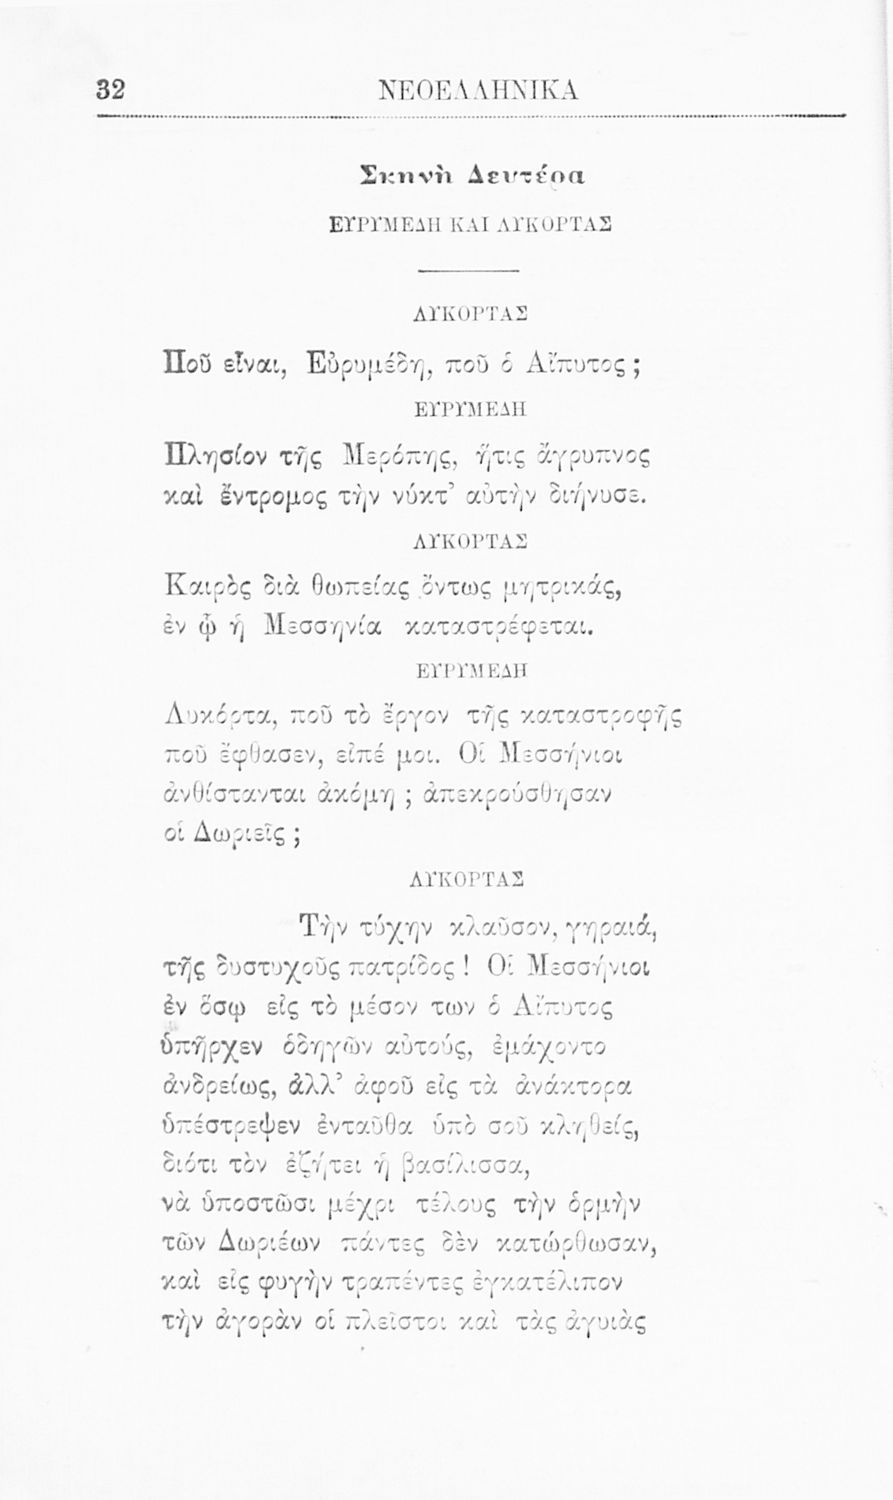 32 ΝΕΟΕΛΛΗΝΙΚΑ
Σκηνὴ Δευτέρα
ΕΥΡΥΜΕΔΗ ΚΑΙ ΛΥΚΟΡΤΑΣ
ΛΥΚΟΡΤΑΣ
Ποῦ εἶναι, Εὐρυμέδη, ποῦ ὁ Αἴπυτος ;
ΕΥΡΥΜΕΔΗ
Πλησίον τῆς Μερόπης, ἥτις ἄγρυπνος
καὶ ἔντρομος τὴν νύκτ’ αὐτὴν διήνυσε.
ΛΥΚΟΡΤΑΣ
Καιρὸς διὰ θωπείας ὄντως μητρικάς,
ἐν ᾧ ἡ Μεσσηνία καταστρέφεται.
ΕΥΡΥΜΕΔΗ
Λυκόρτα, ποῦ τὸ ἔργον τῆς καταστροφῆς
ποῦ ἔφθασεν, εἰπέ μοι. Οἱ Μεσσήνιοι
ἀνθίστανται ἀκόμη ; ἀπεκρούσθησαν
οἱ Δωριεῖς ;
ΛΥΚΟΡΤΑΣ
Τὴν τύχην κλαῦσον, γηραιά,
τῆς δυστυχοῦς πατρίδος ! Οἱ Μεσσήνιοι
ἐν ὅσῳ εἰς τὸ μέσον των ὁ Αἴπυτος
ὑπῆρχεν ὁδηγῶν αὐτούς, ἐμάχοντο
ἀνδρείως, ἀλλ’ ἀφοῦ εἰς τὰ ἀνάκτορα
ὑπέστρεψεν ἐνταῦθα ὑπὸ σοῦ κληθείς,
διότι τὸν ἐζήτει ἡ βασίλισσα,
νὰ ὑποστῶσι μέχρι τέλους τὴν ὁρμὴν
τῶν Δωριέων πάντες δὲν κατώρθωσαν,
καὶ εἰς φυγὴν τραπέντες ἐγκατέλιπον
τὴν ἀγορὰν οἱ πλεῖστοι καὶ τὰς ἀγυιὰς